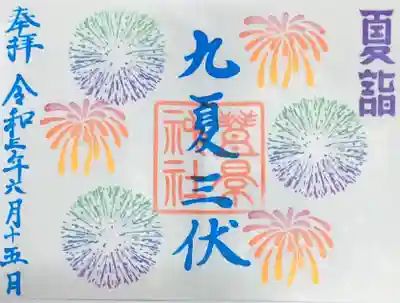 夏詣
九夏三伏
神社
奉拝
令和三年六月十五日